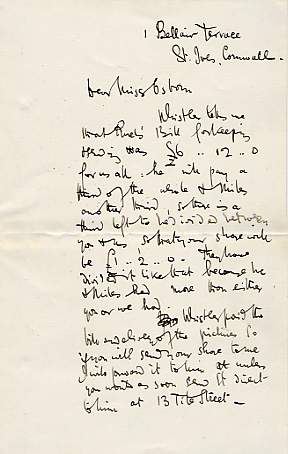 1 Bellair Terrace
St. Ives, Cornwall -
Dear Miss Osborn
Whistler tells me
that Bill for keeping
was £6 .. 12 .. 0
for us all: he will pay a
third of the whole & Miles
another third, so there is a
third left to be divided between
you & us so that your share will
be £1 .. 2 .. 0 - They have
divided it like that because he
& Miles had more than either
you or we had
Whistler paid the
bill on delivery of the pictures So
if you will send your share to me
I will forward it to him or unless
you would as soon send it direct
to him at 13 Tite Street -